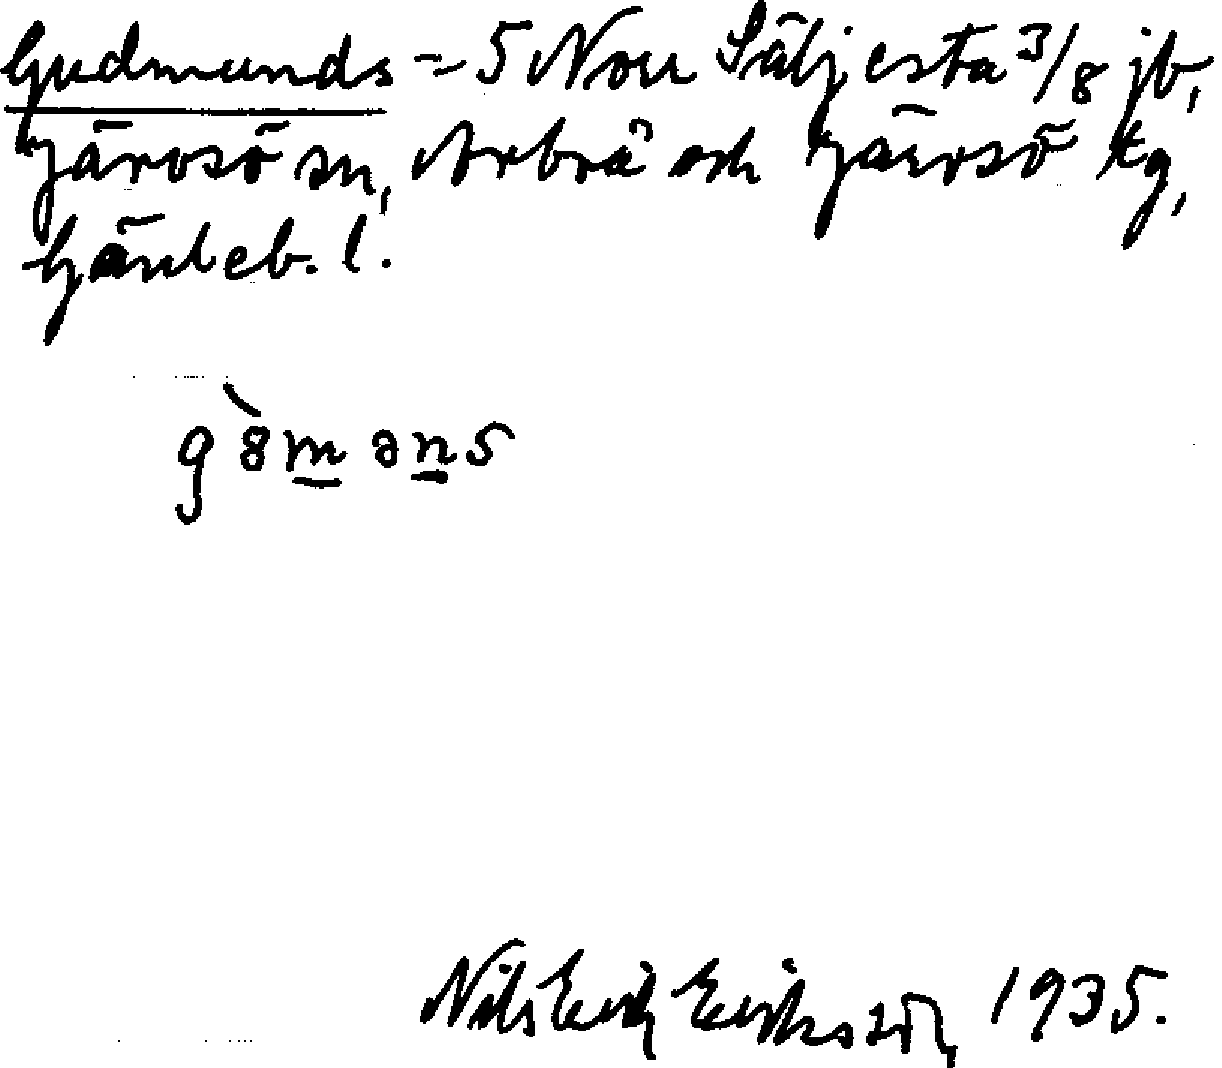 Gudmunds = 5 Norr Säljesta 3/8 jb,
Järvsö sn, Arbrå och Järvsö tg,
Gävleb. l.
g 8̀m əns
Nils Erik Eriksson, 1935.